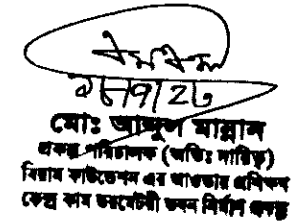 মোঃ আব্দুল মান্নান
প্রকল্প পরিচালক (অতিঃ দায়িত্ব)
বিয়াম ফাউন্ডেশন এর আওতায় প্রশিক্ষণ
কেন্দ্র কাম ডরমেটরী ভবন নির্মাণ প্রকল্প